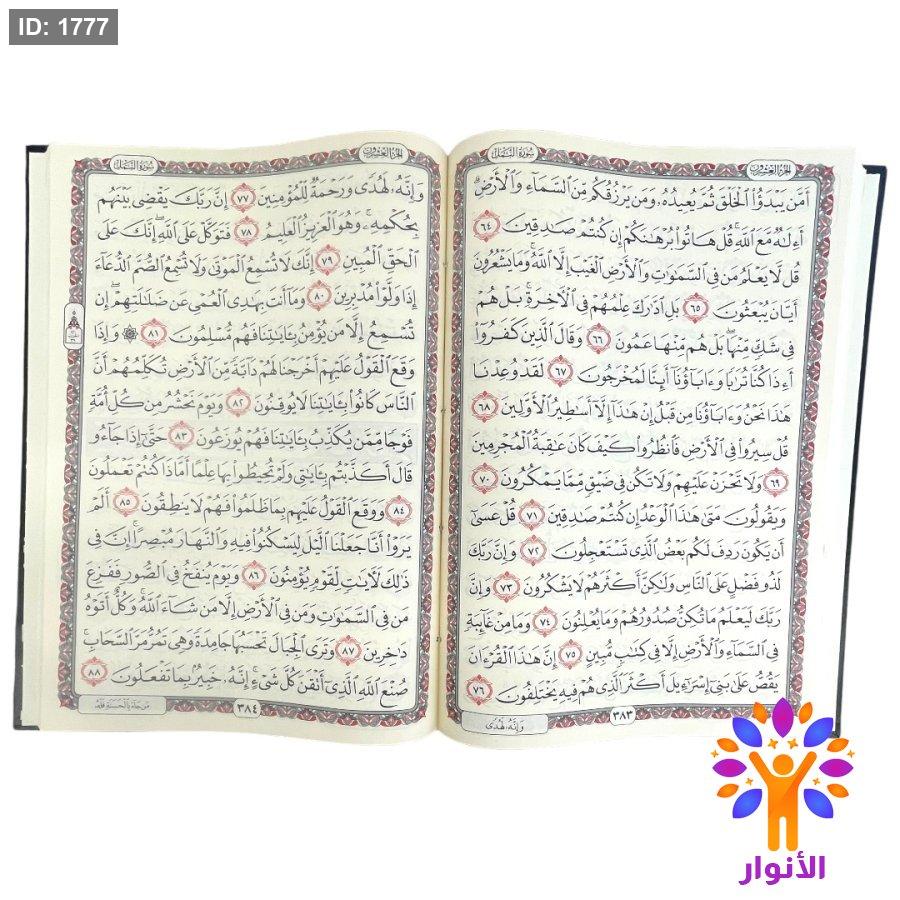 ID: 1777
الجزء العشرون
سورة النمل
أَمَّن يَبْدَؤُا۟ ٱلْخَلْقَ ثُمَّ يُعِيدُهُۥ وَمَن يَرْزُقُكُم مِّنَ ٱلسَّمَآءِ وَٱلْأَرْضِ
أَءِلَٰهٌ مَّعَ ٱللَّهِ قُلْ هَاتُوا۟ بُرْهَٰنَكُمْ إِن كُنتُمْ صَٰدِقِينَ ٦٤
قُل لَّا يَعْلَمُ مَن فِى ٱلسَّمَٰوَٰتِ وَٱلْأَرْضِ ٱلْغَيْبَ إِلَّا ٱللَّهُ وَمَا يَشْعُرُونَ
أَيَّانَ يُبْعَثُونَ ٦٥ بَلِ ٱدَّٰرَكَ عِلْمُهُمْ فِى ٱلْءَاخِرَةِ بَلْ هُمْ
فِى شَكٍّ مِّنْهَا بَلْ هُم مِّنْهَا عَمُونَ ٦٦ وَقَالَ ٱلَّذِينَ كَفَرُوٓا۟
أَءِذَا كُنَّا تُرَٰبًا وَءَابَآؤُنَآ أَئِنَّا لَمُخْرَجُونَ ٦٧ لَقَدْ وُعِدْنَا
هَٰذَا نَحْنُ وَءَابَآؤُنَا مِن قَبْلُ إِنْ هَٰذَآ إِلَّآ أَسَٰطِيرُ ٱلْأَوَّلِينَ ٦٨
قُلْ سِيرُوا۟ فِى ٱلْأَرْضِ فَٱنظُرُوا۟ كَيْفَ كَانَ عَٰقِبَةُ ٱلْمُجْرِمِينَ
٦٩ وَلَا تَحْزَنْ عَلَيْهِمْ وَلَا تَكُن فِى ضَيْقٍ مِّمَّا يَمْكُرُونَ ٧٠
وَيَقُولُونَ مَتَىٰ هَٰذَا ٱلْوَعْدُ إِن كُنتُمْ صَٰدِقِينَ ٧١ قُلْ عَسَىٰٓ
أَن يَكُونَ رَدِفَ لَكُم بَعْضُ ٱلَّذِى تَسْتَعْجِلُونَ ٧٢ وَإِنَّ رَبَّكَ
لَذُو فَضْلٍ عَلَى ٱلنَّاسِ وَلَٰكِنَّ أَكْثَرَهُمْ لَا يَشْكُرُونَ ٧٣ وَإِنَّ
رَبَّكَ لَيَعْلَمُ مَا تُكِنُّ صُدُورُهُمْ وَمَا يُعْلِنُونَ ٧٤ وَمَا مِنْ غَآئِبَةٍ
فِى ٱلسَّمَآءِ وَٱلْأَرْضِ إِلَّا فِى كِتَٰبٍ مُّبِينٍ ٧٥ إِنَّ هَٰذَا ٱلْقُرْءَانَ
يَقُصُّ عَلَىٰ بَنِىٓ إِسْرَٰٓءِيلَ أَكْثَرَ ٱلَّذِى هُمْ فِيهِ يَخْتَلِفُونَ ٧٦
٣٨٣
وَإِنَّهُۥ لَهُدًى
الجزء العشرون
سورة النمل
وَإِنَّهُۥ لَهُدًى وَرَحْمَةٌ لِّلْمُؤْمِنِينَ ٧٧ إِنَّ رَبَّكَ يَقْضِى بَيْنَهُم
بِحُكْمِهِۦ وَهُوَ ٱلْعَزِيزُ ٱلْعَلِيمُ ٧٨ فَتَوَكَّلْ عَلَى ٱللَّهِ إِنَّكَ عَلَى
ٱلْحَقِّ ٱلْمُبِينِ ٧٩ إِنَّكَ لَا تُسْمِعُ ٱلْمَوْتَىٰ وَلَا تُسْمِعُ ٱلصُّمَّ ٱلدُّعَآءَ
إِذَا وَلَّوْا۟ مُدْبِرِينَ ٨٠ وَمَآ أَنتَ بِهَٰدِى ٱلْعُمْىِ عَن ضَلَٰلَتِهِمْ إِن
تُسْمِعُ إِلَّا مَن يُؤْمِنُ بِـَٔايَٰتِنَا فَهُم مُّسْلِمُونَ ٨١ ۞ وَإِذَا
وَقَعَ ٱلْقَوْلُ عَلَيْهِمْ أَخْرَجْنَا لَهُمْ دَآبَّةً مِّنَ ٱلْأَرْضِ تُكَلِّمُهُمْ أَنَّ
ٱلنَّاسَ كَانُوا۟ بِـَٔايَٰتِنَا لَا يُوقِنُونَ ٨٢ وَيَوْمَ نَحْشُرُ مِن كُلِّ أُمَّةٍ
فَوْجًا مِّمَّن يُكَذِّبُ بِـَٔايَٰتِنَا فَهُمْ يُوزَعُونَ ٨٣ حَتَّىٰٓ إِذَا جَآءُو
قَالَ أَكَذَّبْتُم بِـَٔايَٰتِى وَلَمْ تُحِيطُوا۟ بِهَا عِلْمًا أَمَّاذَا كُنتُمْ تَعْمَلُونَ
٨٤ وَوَقَعَ ٱلْقَوْلُ عَلَيْهِم بِمَا ظَلَمُوا۟ فَهُمْ لَا يَنطِقُونَ ٨٥ أَلَمْ
يَرَوْا۟ أَنَّا جَعَلْنَا ٱلَّيْلَ لِيَسْكُنُوا۟ فِيهِ وَٱلنَّهَارَ مُبْصِرًا إِنَّ فِى
ذَٰلِكَ لَءَايَٰتٍ لِّقَوْمٍ يُؤْمِنُونَ ٨٦ وَيَوْمَ يُنفَخُ فِى ٱلصُّورِ فَفَزِعَ
مَن فِى ٱلسَّمَٰوَٰتِ وَمَن فِى ٱلْأَرْضِ إِلَّا مَن شَآءَ ٱللَّهُ وَكُلٌّ أَتَوْهُ
دَٰخِرِينَ ٨٧ وَتَرَى ٱلْجِبَالَ تَحْسَبُهَا جَامِدَةً وَهِىَ تَمُرُّ مَرَّ ٱلسَّحَابِ
صُنْعَ ٱللَّهِ ٱلَّذِىٓ أَتْقَنَ كُلَّ شَىْءٍ إِنَّهُۥ خَبِيرٌۢ بِمَا تَفْعَلُونَ ٨٨
٣٨٤
مَن جَآءَ بِٱلْحَسَنَةِ فَلَهُۥ
الأنوار